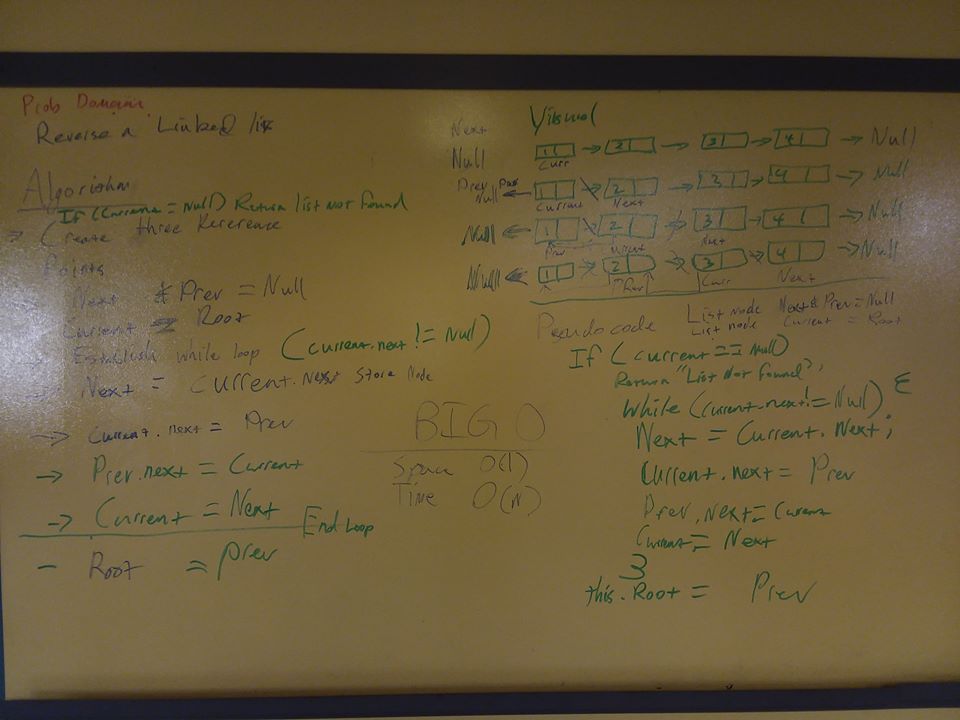 Prob Domain
Reverse a Linked list
Algorithm
If (Current = Null) Return list not found
→ Create three Reference
Points
→ Next & Prev = Null
→ Current = Root
→ Establish while loop (current.next != Null)
→ Next = Current.Next Store Node
→ Current.next = Prev
→ Prev.next = Current
→ Current = Next
End Loop
- Root = prev
BIG O
Space O(1)
Time O(N)
Visual
Next
Null
1 → 2 → 3 → 4 → Null
Curr
Prev
Null ← 1 2 → 3 → 4 → Null
Current Next
Null ← 1 2 3 → 4 → Null
Prev Current Next
Null ← 1 2 3 4 → Null
Prev Curr Next
Pseudo code List node Next & Prev = Null
List node Current = Root
If (current == Null)
Return "List Not Found";
while (current.next != Null) {
Next = Current.Next;
Current.next = Prev
Prev.Next = Current
Current = Next
}
this.Root = Prev